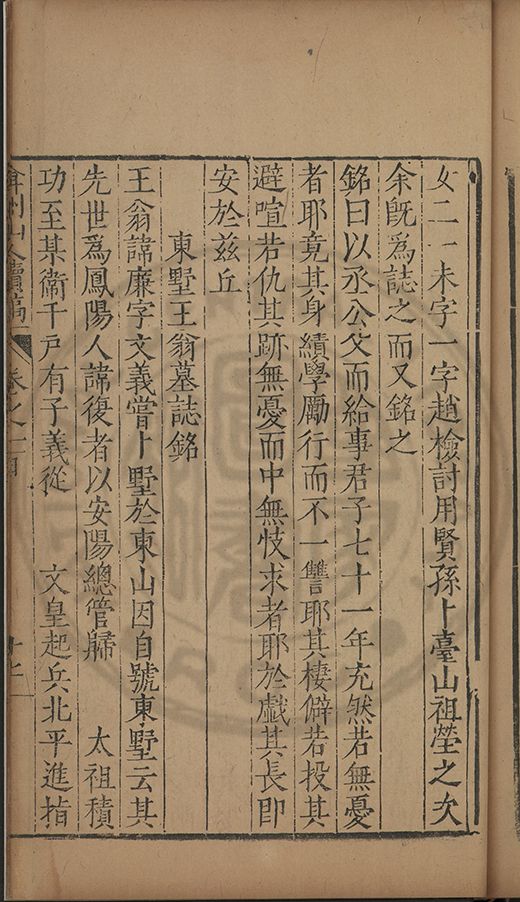 女二一未字一字趙檢討用賢孫卜臺山祖塋之次
余旣爲誌之而又銘之
銘曰以丞公父而給事君子七十一年充然若無憂
者耶竟其身績學勵行而不一讐耶其棲僻若投其
避喧若仇其跡無憂而中無忮求者耶於戲其長卽
安於茲丘
東墅王翁墓誌銘
王翁諱廉字文義嘗卜墅於東山因自號東墅云其
先世爲鳳陽人諱復者以安陽總管歸 太祖積
功至某衞千戶有子義從 文皇起兵北平進指
弇州山人續稿 卷之一百